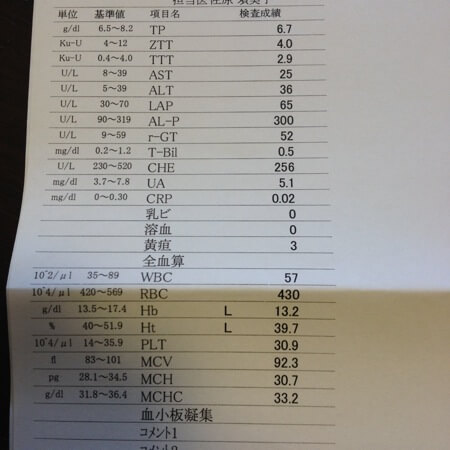 担当医
単位 基準値 項目名 検査成績
g/dl 6.5～8.2 TP 6.7
Ku-U 4～12 ZTT 4.0
Ku-U 0.4～4.0 TTT 2.9
U/L 8～39 AST 25
U/L 5～39 ALT 36
U/L 30～70 LAP 65
U/L 90～319 AL-P 300
U/L 9～59 r-GT 52
mg/dl 0.2～1.2 T-Bil 0.5
U/L 230～520 CHE 256
mg/dl 3.7～7.8 UA 5.1
mg/dl 0～0.30 CRP 0.02
乳ビ 0
溶血 0
黄疸 3
全血算
10^2/μl 35～89 WBC 57
10^4/μl 420～569 RBC 430
g/dl 13.5～17.4 Hb L 13.2
% 40～51.9 Ht L 39.7
10^4/μl 14～35.9 PLT 30.9
fl 83～101 MCV 92.3
pg 28.1～34.5 MCH 30.7
g/dl 31.8～36.4 MCHC 33.2
血小板凝集
コメント1